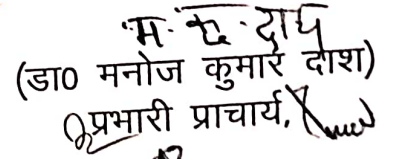 म. कु. दाश
(डा० मनोज कुमार दाश)
प्रभारी प्राचार्य,